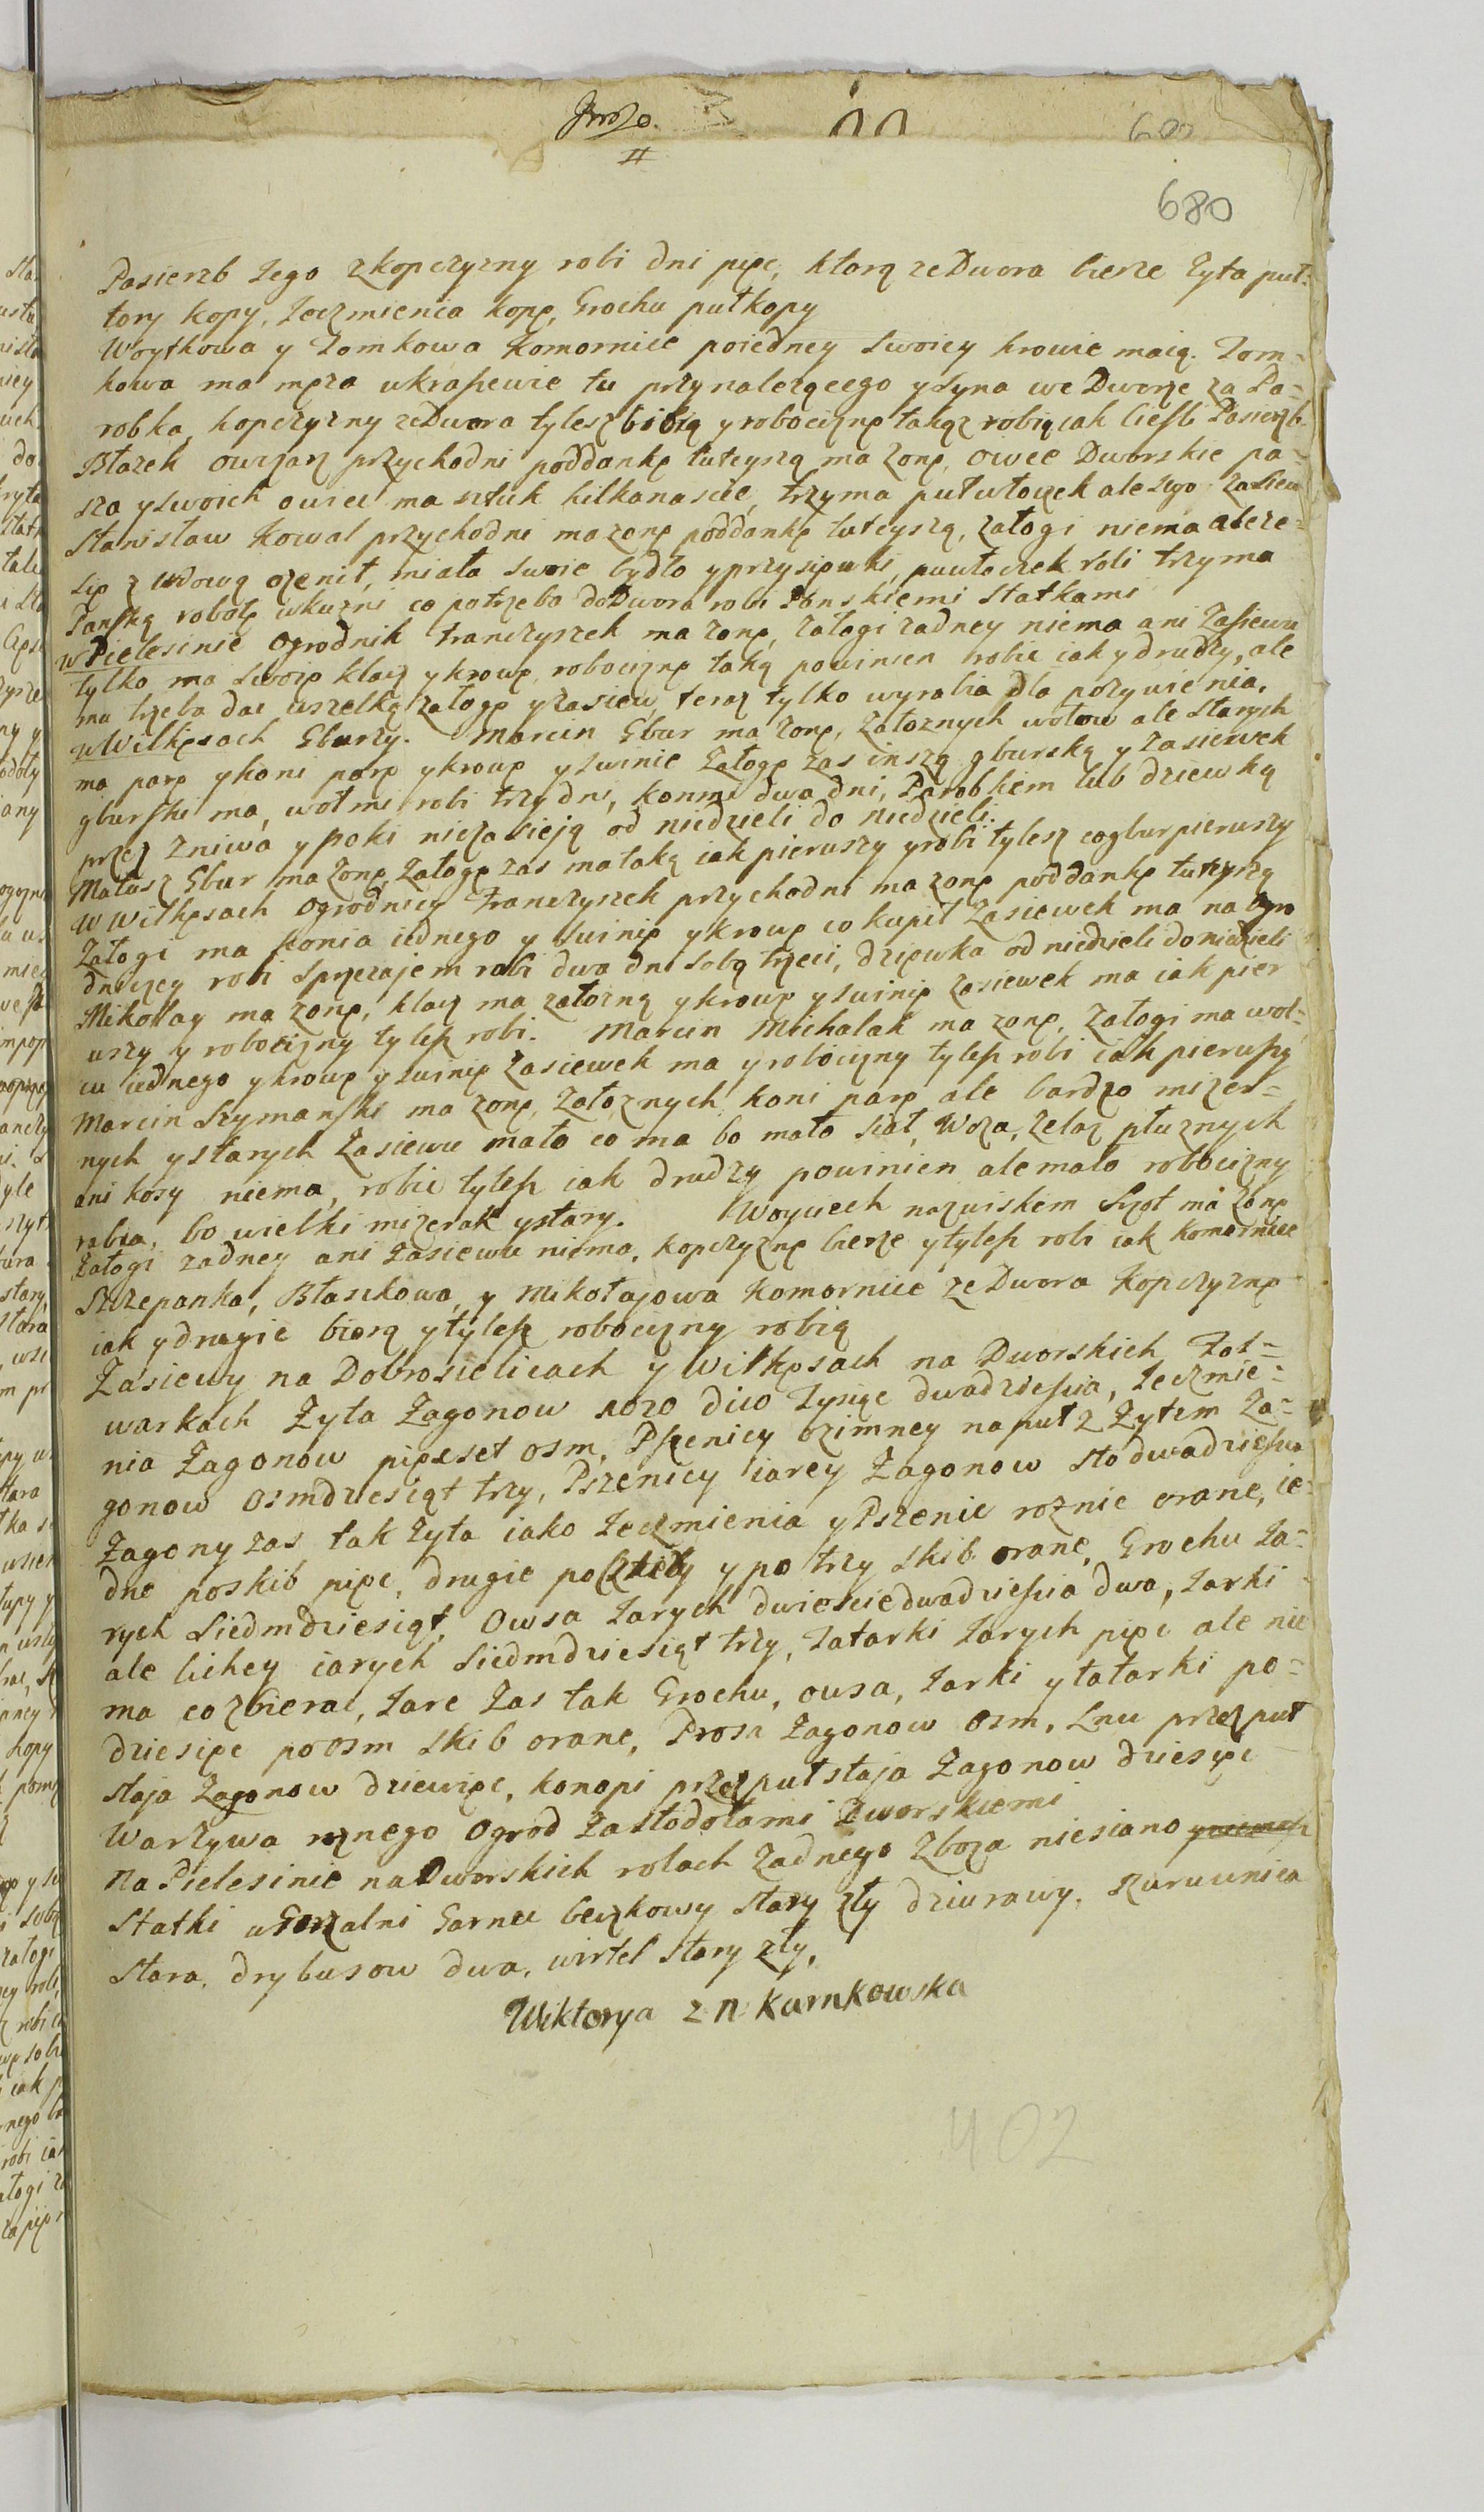 680
Pasierzb Jego z kopczyzny robi dni pięc, ktorą ze Dwora bierze żyta puł-
tory kopy, Jęczmienia kopę, Grochu puł kopy
Woytkowa y Tomkowa Komornice poiedney swoiey krowie maią. Tom=
kowa ma męza w krasewie tu przynalezącego y syna we Dworze za Pa=
robka, kopczyzny ze Dwora tylesz biorą y robociznę takąz robią iak Cieśli Pasierzb
Błazek owczarz przychodni poddankę tuteyszą ma zonę, owce Dworskie pa=
sza y swoich owiec ma sztuk kilkanascie, trzyma puł włoczek ale Jego zasiew
Stanisław Kowal przychodni ma zonę poddankę tuteyszą, załogi niema ale ze=
się z wdową ozenił, miała swoie bydło y przysiewki, puwłoczek roli trzyma
Panską robotę w kuzni co potrzeba do Dwora robi Panskiemi statkami
w Pielesinie Ogrodnik Franczyszek ma zonę, załogi zadney niema ani zasiewu
tylko ma swoię klacz y krowę, robociznę taką powinien robic iak y drudzy, ale
mu trzeba dac wszelką załogę y zasiew, teraz tylko wyrabia dla pozywienia.
w Wilkęsach Gburzy. Marcin Gbur ma zonę, załoznych wołow ale starych
ma parę y koni parę y krowę y swinie załogę zas inszą gburską y zasiewek
gburski ma, wołmi robi trzy dni, konmi dwa dni, Parobkiem lub dziewką
przez zniwa y poki niezasieją od niedzieli do niedzieli.
Matusz Gbur ma zonę, załogę zas ma taką iak pierwszy y robi tylesz co gbur pierwszy
W Wilkęsach Ogrodnicy Franczyszek przychodni ma zonę poddankę tuteyszą
załogi ma konia iednego y swinię y krowę co kupił zasiewek ma na ogro
dniczey roli sprzęzajem robi dwa dni sobą trzeci, dziewka od niedzieli do niedzieli
Mikołay ma zonę, klacz ma załozną y krowę y swinię zasiewek ma iak pier
wszy y robocizny tylesz robi. Marcin Michalak ma zonę, załogi ma woł=
cu iednego y krowę y swinię zasiewek ma y robocizny tylesz robi iak pierwszy
Marcin Szymanski ma zonę, załoznych koni parę ale bardzo mizer=
nych y starych zasiewu mało co ma bo mało siał, Woza, zelaz płuznych
ani kosy niema, robic tylesz iak drudzy powinien ale mało robocizny
rabia, bo wielki mizerak y stary. Woyciech nazwiskem Szot ma zonę
załogi zadney ani zasiewu niema, kopczyznę bierze y tylesz robi iak komornice
Szczepanka, Błaszkowa, y Mikołajowa Komornice ze Dwora kopczyznę
iak y drugie biorą y tylesz robocizny robią
Zasiewy na Dobrosielicach y Wilkęsach na Dworskich Fol=
warkach Żyta Zagonow 1020 diło Tysiąc dwadziescia, Jęczmie=
nia Zagonow pięcset osm, Pszenicy ozimney na puł z Żytem Za=
gonow osmdziesiąt trzy, Pszenicy iarey Zagonow sto dwadziescia
Zagony zas tak Żyta iako Jęczmienia y Pszenic roznie orane, ie=
dne po skib pięc, drugie po sztery y po trzy skib orane, Grochu Ja=
rych Siedmdziesiąt, Owsa Jarych dwiescie dwadziescia dwa, Jarki
ale lichey iarych siedmdziesiąt trzy, Tatarki Jarych pięc ale nie
ma co zbierac, Jare zas tak Grochu, owsa, Jarki y tatarki po=
dziesięc po osm skib orane, Prosa Zagonow osm, Lnu przez puł
staja Zagonow dziewięc, konopi przez puł staja Zagonow dziesięc
Warzywa roznego Ogrod za stodołami Dworskiemi
Na Pielesinie na Dworskich rolach zadnego zboza niesiano
Statki w Gorzalni Garnec beczkowy stary zły dziurawy, Rurwnica
stara, drybusow dwa, wirtel stary zły,
Wiktorya z N Kurnkowska
402